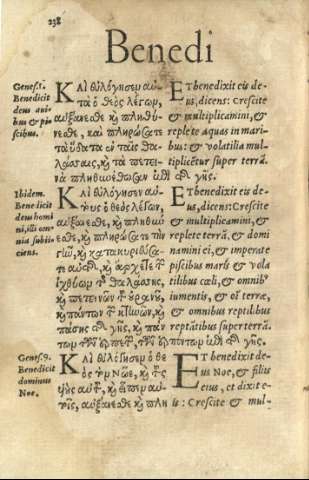 238
Benedi
Genes.1.
Benedicit
deus aui-
bus & pi-
scibus.
ΚΑὶ εὐλόγησεν αὐ-
τὰ ὁ θεὸς λέγων,
αὐξάνεσθε, καὶ πληθύ-
νεσθε, καὶ πληρώσατε
τὰ ὕδατα ἐν ταῖς θα-
λάσσαις, καὶ τὰ πετει-
νὰ πληθυνέσθωσαν ἐπὶ τῆς γῆς.
ET benedixit eis de-
us, dicens: Crescite
& multiplicamini, &
replete aquas in mari-
bus: & volatilia mul-
tiplicētur super terrā.
Ibidem.
Benedicit
deus homi
ni, illi om-
nia subii-
ciens.
ΚΑὶ εὐλόγησεν αὐ-
τοὺς ὁ θεὸς λέγων,
αὐξάνεσθε, καὶ πληθύ-
νεσθε, καὶ πληρώσατε τὴν
γῆν, καὶ κατακυριεύσα-
τε αὐτῆς, καὶ ἄρχετε τῶν
ἰχθύων τῆς θαλάσσης,
καὶ πετεινῶν τοῦ οὐρανοῦ,
καὶ πάντων τῶν κτηνῶν, καὶ
πάσης τῆς γῆς, καὶ πάν
των τῶν ἑρπετῶν τῶν ἑρπόντων ἐπὶ τῆς γῆς.
ET benedixit eis de-
us, dicens: Crescite
& multiplicamini, &
replete terrā, & domi
namini ei, & imperate
piscibus maris & vola
tilibus cœli, & omnib⁹
iumentis, & oī terræ,
& omnibus reptilibus
reptātibus super terrā.
Genes.9.
Benedicit
dominus
Noe.
ΚΑὶ εὐλόγησεν ὁ θε
ὸς τὸν Νῶε, καὶ τοὺς
υἱοὺς αὐτοῦ, καὶ εἶπεν αὐ-
τοῖς, αὐξάνεσθε καὶ πλη
ET benedixit de-
us Noe, & filiis
eius, et dixit e-
is: Crescite & mul-